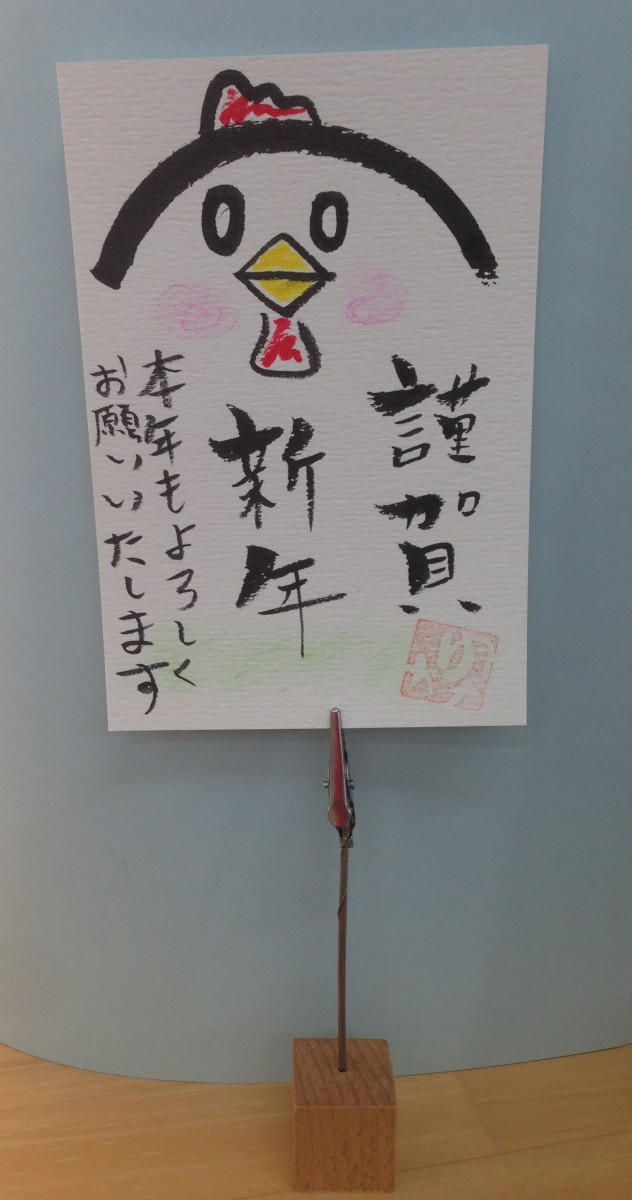 謹賀
新年
本年もよろしく
お願いいたします